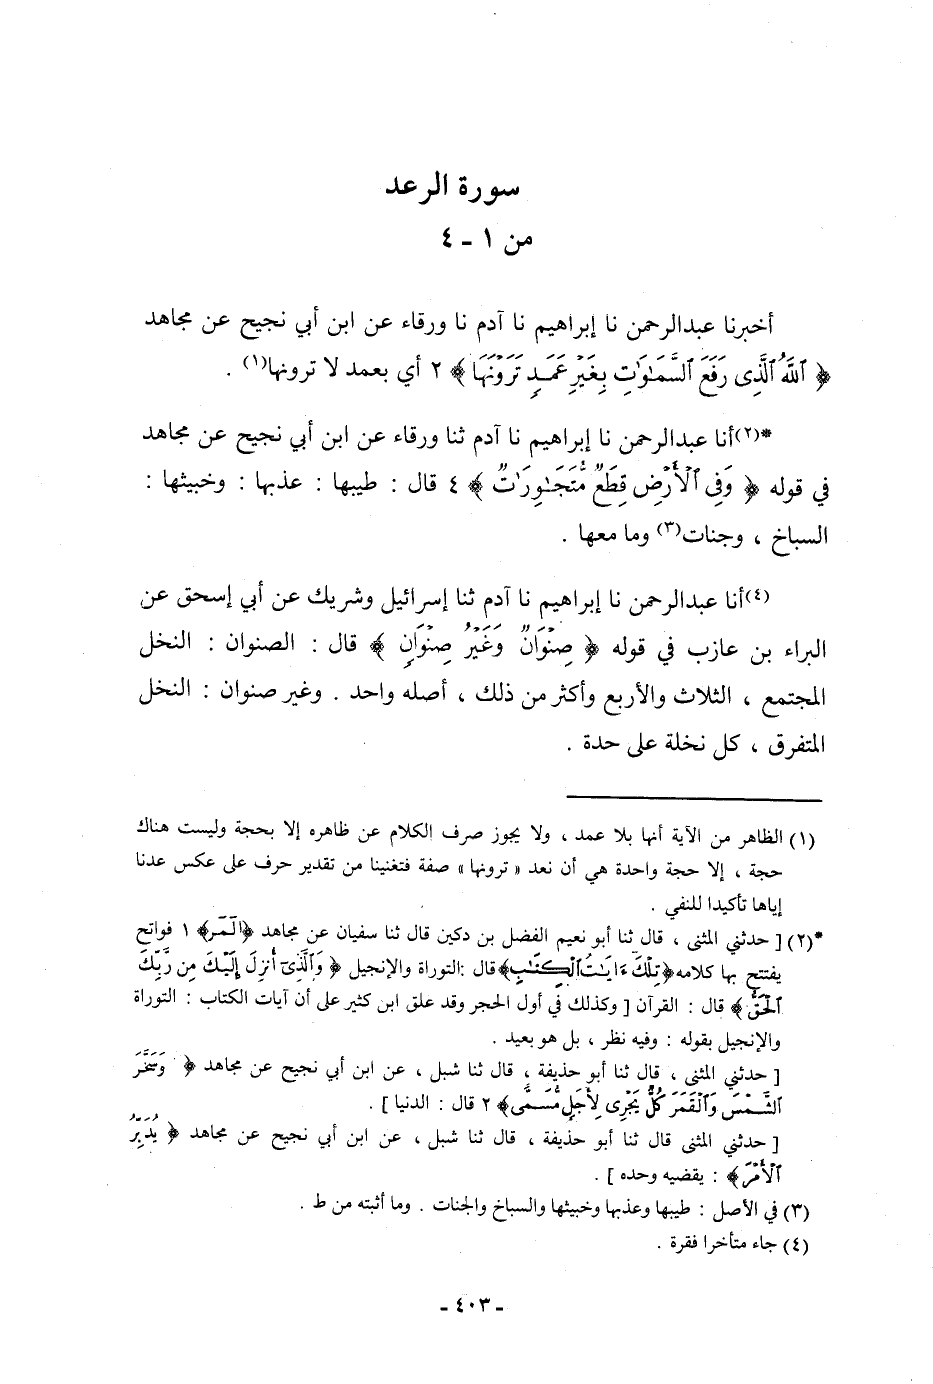 سورة الرعد
من ١ - ٤
أخبرنا عبدالرحمن نا إبراهيم نا آدم نا ورقاء عن ابن أبي نجيح عن مجاهد
﴿ ٱللَّهُ ٱلَّذِى رَفَعَ ٱلسَّمَـٰوَٰتِ بِغَيْرِ عَمَدٍ تَرَوْنَهَا ﴾ ٢ أي بعمد لا ترونها(١) .
*(٢)أنا عبدالرحمن نا إبراهيم نا آدم ثنا ورقاء عن ابن أبي نجيح عن مجاهد
في قوله ﴿ وَفِى ٱلْأَرْضِ قِطَعٌ مُّتَجَـٰوِرَٰتٌ ﴾ ٤ قال : طيبها : عذبها : وخبيثها :
السباخ ، وجنات(٣) وما معها .
(٤)أنا عبدالرحمن نا إبراهيم نا آدم ثنا إسرائيل وشريك عن أبي إسحق عن
البراء بن عازب في قوله ﴿ صِنْوَانٌ وَغَيْرُ صِنْوَانٍ ﴾ قال : الصنوان : النخل
المجتمع ، الثلاث والأربع وأكثر من ذلك ، أصله واحد . وغير صنوان : النخل
المتفرق ، كل نخلة على حدة .
(١) الظاهر من الآية أنها بلا عمد ، ولا يجوز صرف الكلام عن ظاهره إلا بحجة وليست هناك
حجة ، إلا حجة واحدة هي أن نعد « ترونها » صفة فتغنينا من تقدير حرف على عكس عدنا
إياها تأكيدا للنفي .
*(٢) [ حدثني المثنى ، قال ثنا أبو نعيم الفضل بن دكين قال ثنا سفيان عن مجاهد ﴿الٓمٓر﴾ ١ فواتح
يفتتح بها كلامه﴿تِلْكَ ءَايَـٰتُ ٱلْكِتَـٰبِ﴾قال :التوراة والإنجيل ﴿ وَٱلَّذِىٓ أُنزِلَ إِلَيْكَ مِن رَّبِّكَ
ٱلْحَقُّ ﴾ قال : القرآن [ وكذلك في أول الحجر وقد علق ابن كثير على أن آيات الكتاب : التوراة
والإنجيل بقوله : وفيه نظر ، بل هو بعيد .
[ حدثني المثنى ، قال ثنا أبو حذيفة ، قال ثنا شبل ، عن ابن أبي نجيح عن مجاهد ﴿ وَسَخَّرَ
ٱلشَّمْسَ وَٱلْقَمَرَ كُلٌّ يَجْرِى لِأَجَلٍ مُّسَمًّى﴾ ٢ قال : الدنيا ] .
[ حدثني المثنى قال ثنا أبو حذيفة ، قال ثنا شبل ، عن ابن أبي نجيح عن مجاهد ﴿ يُدَبِّرُ
ٱلْأَمْرَ﴾ : يقضيه وحده ] .
(٣) في الأصل : طيبها وعذبها وخبيثها والسباخ والجنات . وما أثبته من ط .
(٤) جاء متأخرا فقرة .
- ٤٠٣ -